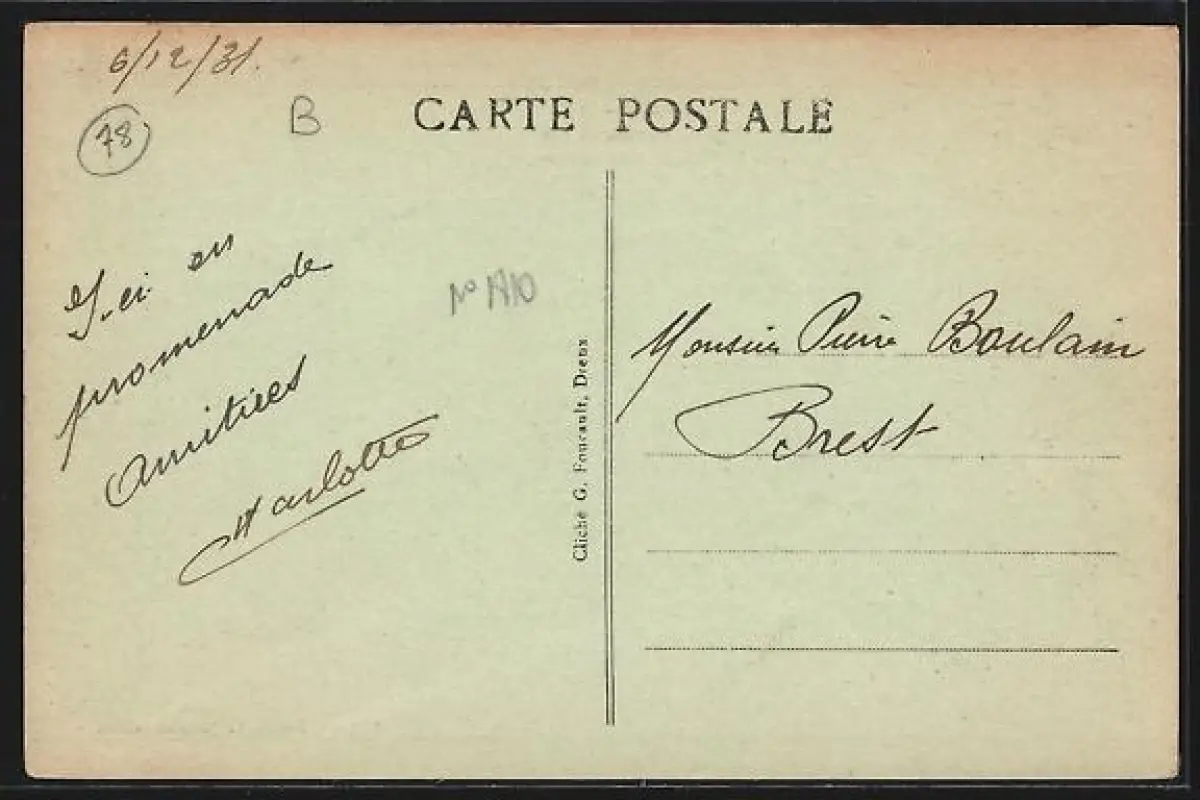 6/12/31.
78
B
CARTE POSTALE
I-ci en
promenade
Amitiées
Charlotte
Cliché G. Foucault, Dreux
Monsieur Pierre Boulain
Brest